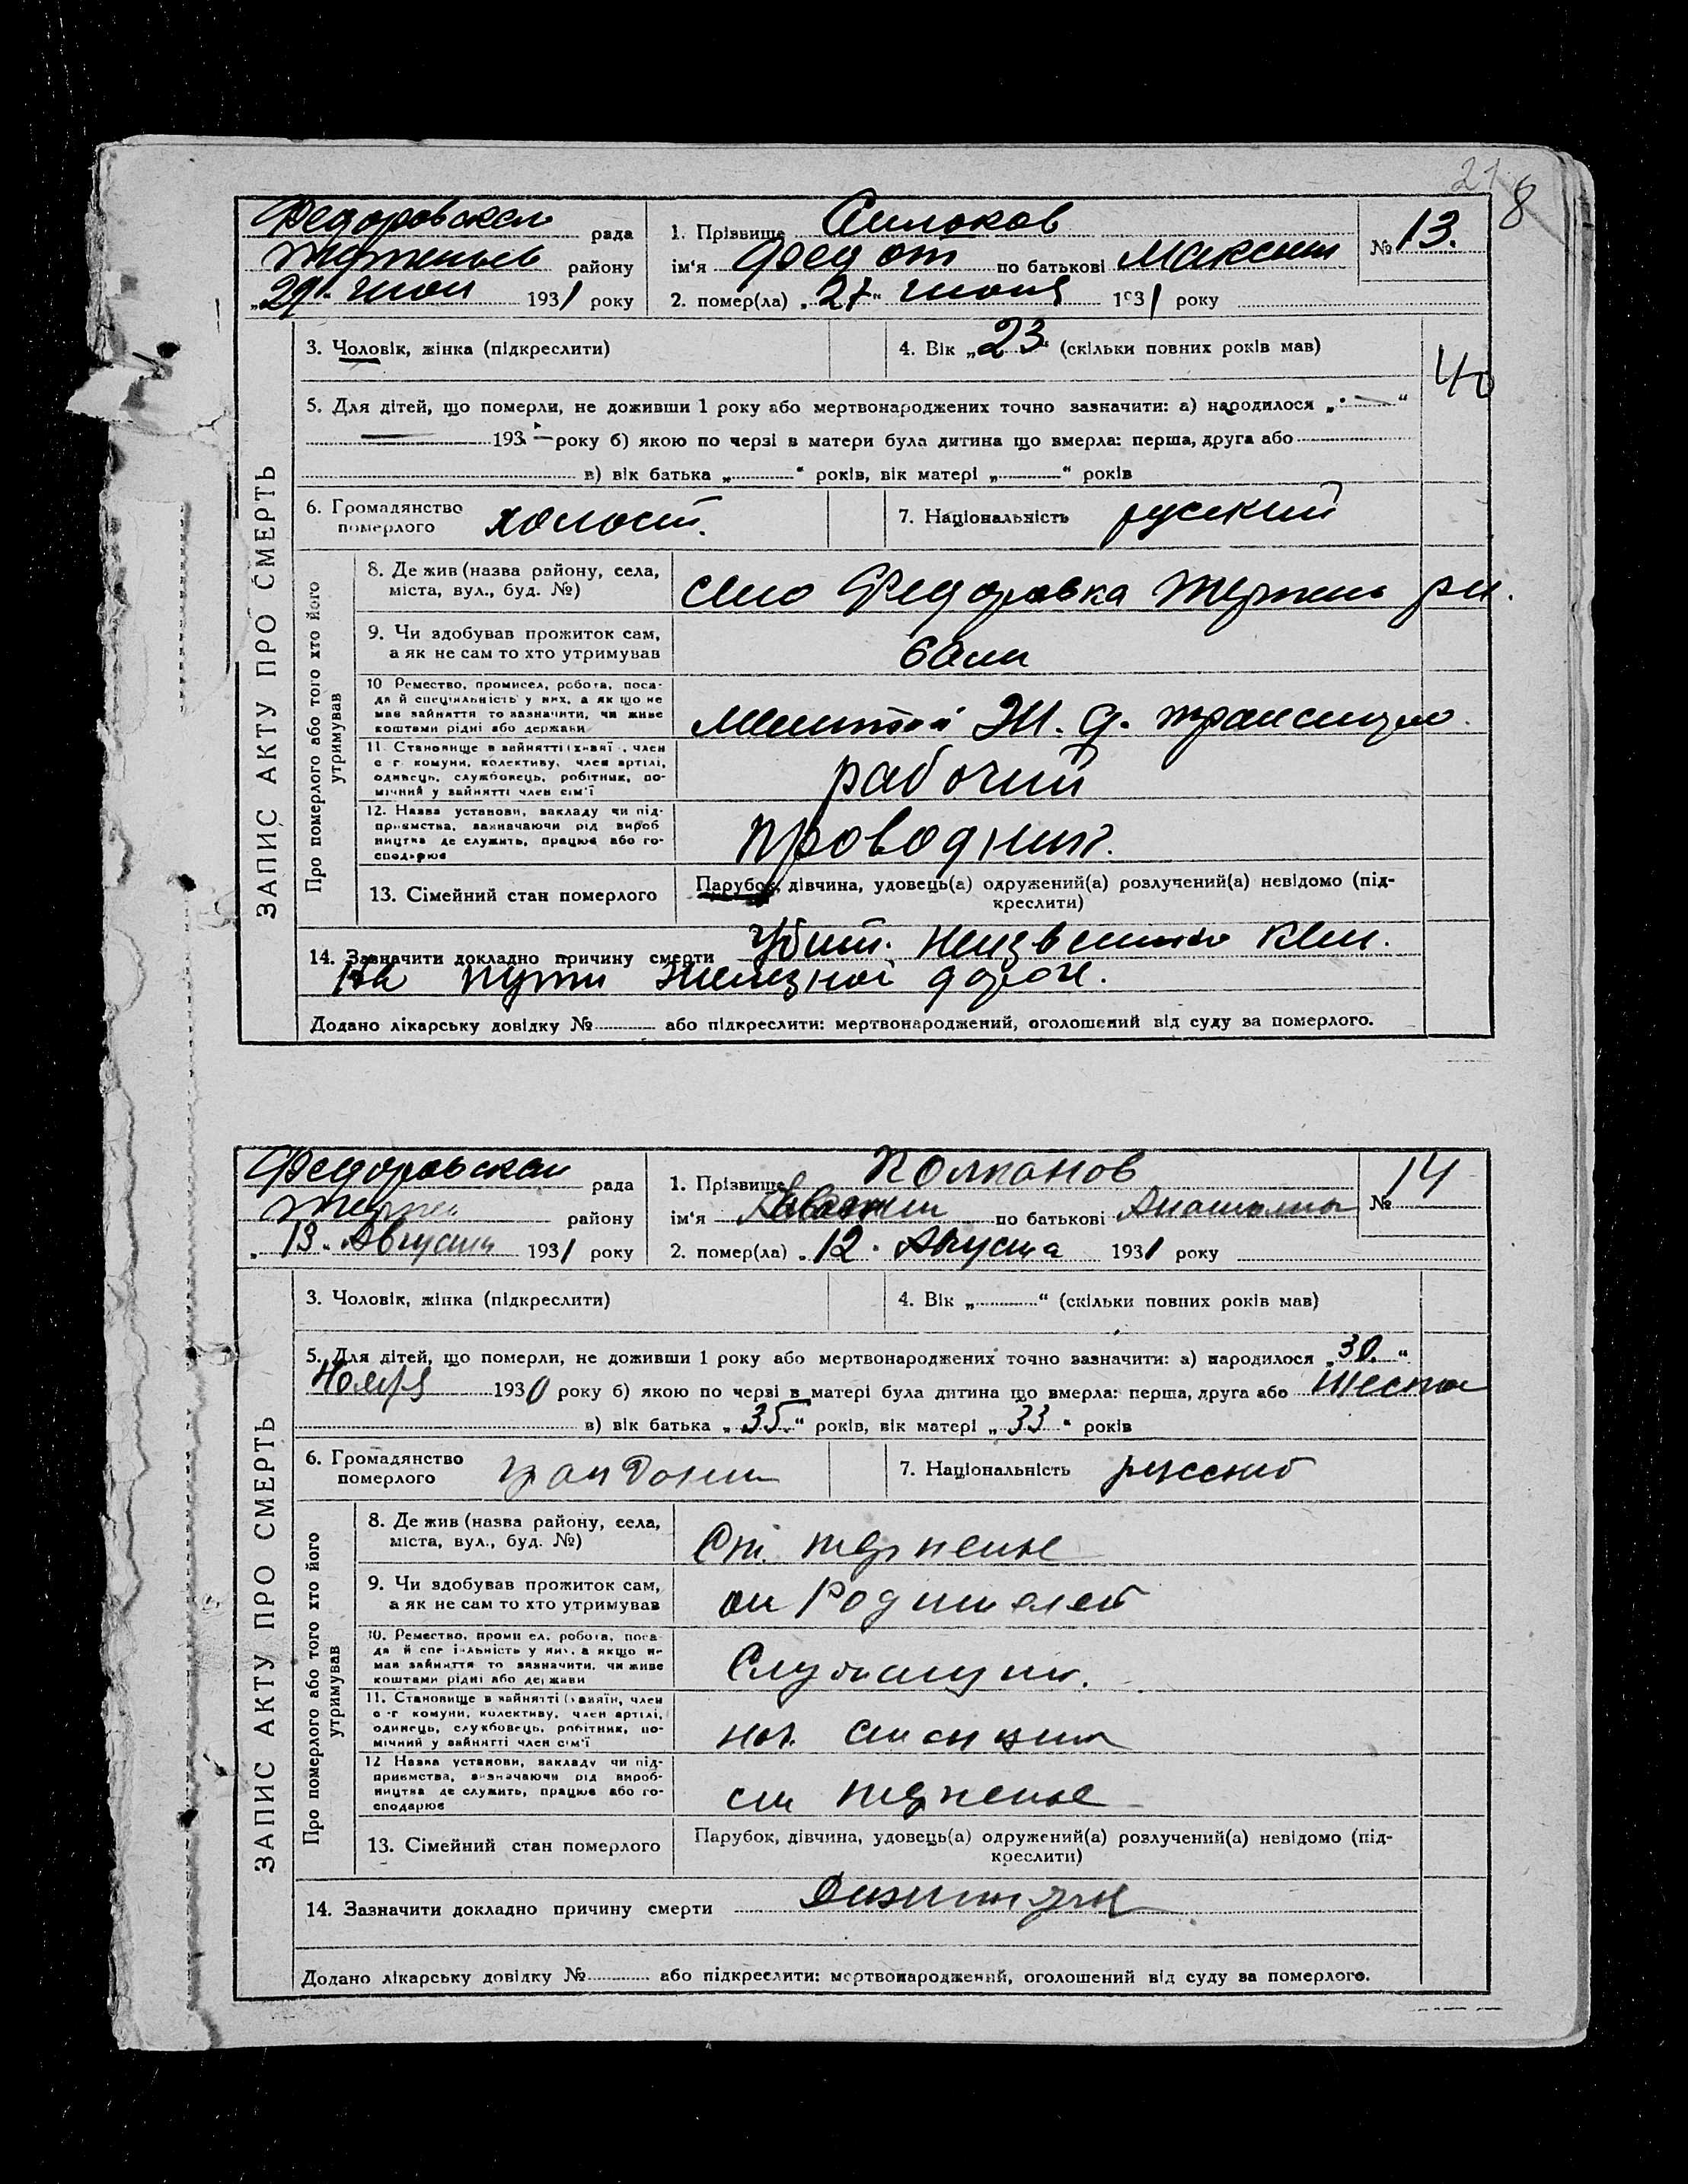 21 8
Федоровская рада
району
„29“ июн 1931 року
1. Прізвище Силоков
ім'я Федот по батькові Максим
№ 13.
2. помер(ла) „27“ июня 1931 року
ЗАПИС АКТУ ПРО СМЕРТЬ
3. Чоловік, жінка (підкреслити)
4. Вік „23“ (скільки повних років мав)
40
5. Для дітей, що померли, не доживши 1 року або мертвонароджених точно зазначити: а) народилося „ — “
— 193 — року б) якою по черзі в матери була дитина що вмерла: перша, друга або
в) вік батька „ “ років, вік матері „ “ років
6. Громадянство померлого холост.
7. Національність русский
Про померлого або того хто його утримував
8. Де жив (назва району, села, міста, вул., буд. №)
село Федоровка рн.
9. Чи здобував прожиток сам, а як не сам то хто утримував
сам
10 Ремество, промисел, робота, посада й спеціяльність у них, а як що не має зайняття то зазначити, чи живе коштами рідні або держави
Ж. д.
11. Становище в зайнятті (хазяї , член с-г. комуни, колективу, член артілі, одинець, службовець, робітник, помічний у зайнятті член сім'ї
рабочий
12. Назва установи, закладу чи підприємства, зазначаючи рід виробництва де служить, працює або господарює
проводник.
13. Сімейний стан померлого
Парубок, дівчина, удовець(а) одружений(а) розлучений(а) невідомо (підкреслити)
14. Зазначити докладно причину смерти Убит. неизвестно кем.
на пути железной дороге.
Додано лікарську довідку № або підкреслити: мертвонароджений, оголошений від суду за померлого.
Федоровская рада
району
„13“ Августа 1931 року
1. Прізвище Колпанов
ім'я по батькові
№ 14
2. помер(ла) „12“ Августа 1931 року
ЗАПИС АКТУ ПРО СМЕРТЬ
3. Чоловік, жінка (підкреслити)
4. Вік „ “ (скільки повних років мав)
5. Для дітей, що померли, не доживши 1 року або мертвонароджених точно зазначити: а) народилося „30“
Ноября 1930 року б) якою по черзі в матері була дитина що вмерла: перша, друга або шестая
в) вік батька „35“ років, вік матері „33“ років
6. Громадянство померлого
7. Національність русский
Про померлого або того хто його утримував
8. Де жив (назва району, села, міста, вул., буд. №)
Ст.
9. Чи здобував прожиток сам, а як не сам то хто утримував
от Родителей
10. Ремество, промисел, робота, посада й спеціяльність у них, а якщо не має зайняття то зазначити, чи живе коштами рідні або держави
Служащий.
11. Становище в зайнятті (хазяїн, член с-г комуни, колективу, член артілі, одинець, службовець, робітник, помічний у зайнятті член сім'ї
нач. станции
12 Назва установи, закладу чи підприємства, зазначаючи рід виробництва де служить, працює або господарює
ст
13. Сімейний стан померлого
Парубок, дівчина, удовець(а) одружений(а) розлучений(а) невідомо (підкреслити)
14. Зазначити докладно причину смерти Дизинтерія
Додано лікарську довідку № або підкреслити: мертвонароджений, оголошений від суду за померлого.